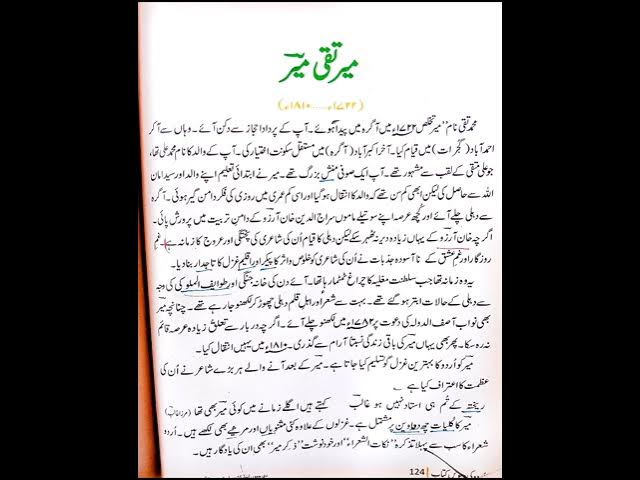 میر تقی میرؔ
(۱۷۲۲ء.....۱۸۱۰ء)
محمد تقی نام، میر تخلص ۱۷۲۲ء میں آگرہ میں پیدا ہوئے۔ آپ کے پردادا حجاز سے دکن آئے۔ وہاں سے آ کر
احمد آباد (گجرات) میں قیام کیا۔ آخر اکبر آباد (آگرہ) میں مستقل سکونت اختیار کی۔ آپ کے والد کا نام محمد علی تھا،
جو علی متقی کے لقب سے مشہور تھے۔ آپ ایک صوفی منش بزرگ تھے۔ میر نے ابتدائی تعلیم اپنے والد اور سید امان
اللہ سے حاصل کی لیکن ابھی کم سن تھے کہ والد کا انتقال ہو گیا اور اسی کم عمری میں روزی کی فکر دامن گیر ہوئی۔ آگرہ
سے دہلی چلے آئے اور کچھ عرصہ اپنے سوتیلے ماموں سراج الدین خان آرزو کے دامنِ تربیت میں پرورش پائی۔
اگرچہ خان آرزو کے یہاں زیادہ دیر نہ ٹھہر سکے لیکن دہلی کا قیام اُن کی شاعری کی پختگی اور عروج کا زمانہ ہے۔ غمِ
روزگار اور غمِ عشق کے نا آسودہ جذبات نے اُن کی شاعری کو خلوص و اثر کا پیکر اور اقلیمِ غزل کا تاجدار بنا دیا۔
یہ وہ زمانہ تھا جب سلطنتِ مغلیہ کا چراغ ٹمٹما رہا تھا۔ آئے دن کی خانہ جنگی اور طوائف الملوکی کی وجہ
سے دہلی کے حالات ابتر ہو گئے تھے۔ بہت سے شعرا اور اہلِ قلم دہلی چھوڑ کر لکھنو جا رہے تھے۔ چنانچہ میرؔ
بھی نواب آصف الدولہ کی دعوت پر ۱۷۸۲ء میں لکھنو چلے آئے۔ اگرچہ دربار سے تعلق زیادہ عرصہ قائم
نہ رہ سکا۔ پھر بھی یہاں میرؔ کی باقی زندگی نسبتاً آرام سے گذری۔ ۱۸۱۰ء میں یہیں انتقال کیا۔
میرؔ کو اُردو کا بہترین غزل گو تسلیم کیا جاتا ہے۔ میرؔ کے بعد آنے والے ہر بڑے شاعر نے اُن کی
عظمت کا اعتراف کیا ہے
ریختہ کے تُم ہی استاد نہیں ہو غالبؔ کہتے ہیں اگلے زمانے میں کوئی میرؔ بھی تھا (مرزا غالبؔ)
میرؔ کا کلیات چھ دواوین پر مشتمل ہے۔ غزلوں کے علاوہ کئی مثنویاں اور مرثیے بھی لکھے ہیں۔ اُردو
شعراء کا سب سے پہلا تذکرہ "نکات الشعراء" اور خود نوشت "ذکرِ میر" بھی ان کی یادگار ہیں۔
124